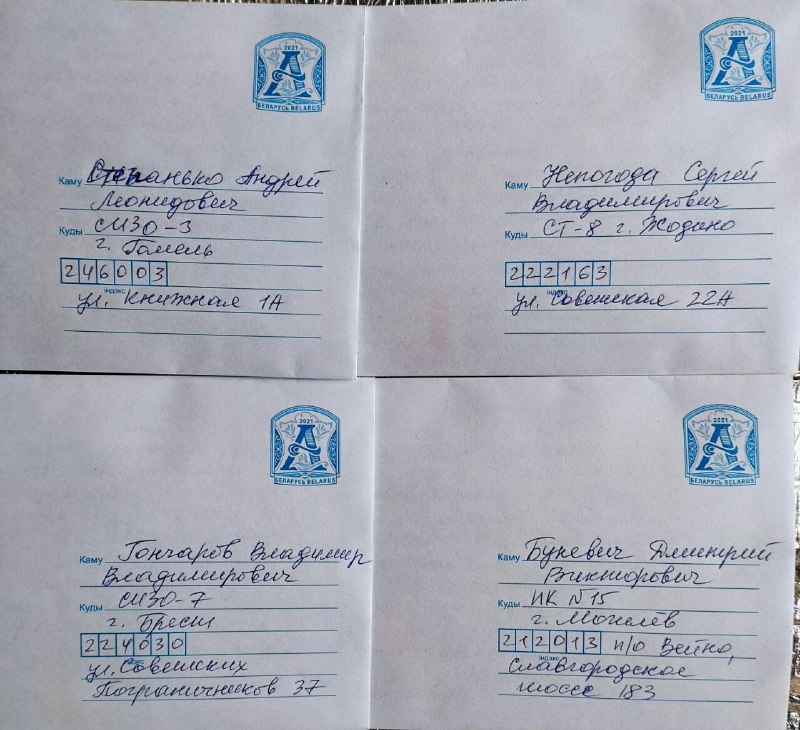 2021
А
БЕЛАРУСЬ BELARUS
Каму Степанько Андрей
Леонидович
Куды СИЗО-3
г. Гомель
246003
індэкс
ул. Книжная 1А
2021
А
БЕЛАРУСЬ BELARUS
Каму Непогода Сергей
Владимирович
Куды СТ-8 г. Жодино
222163
індэкс
ул. Советская 22А
2021
А
БЕЛАРУСЬ BELARUS
Каму Гончаров Владимир
Владимирович
Куды СИЗО-7
г. Брест
224030
індэкс
ул. Советских
Пограничников 37
2021
А
БЕЛАРУСЬ BELARUS
Каму Буневич Дмитрий
Викторович
Куды ИК №15
г. Могилёв
212013 п/о Вейно,
індэкс
Славгородское
шоссе 183